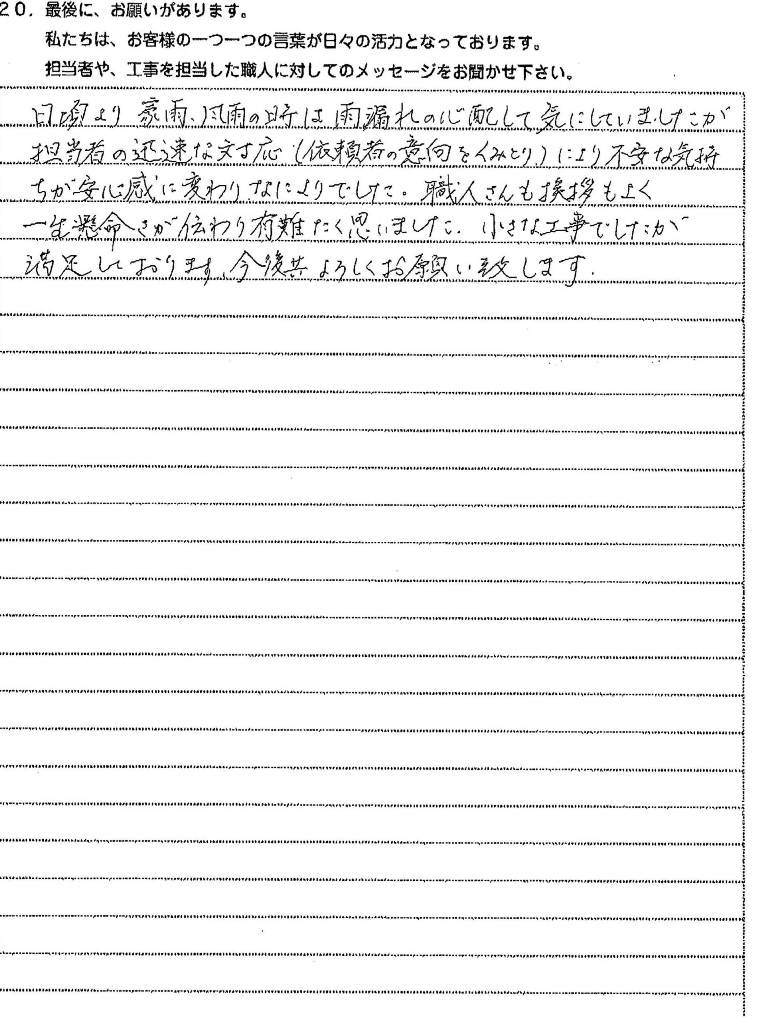 20. 最後に、お願いがあります。
私たちは、お客様の一つ一つの言葉が日々の活力となっております。
担当者や、工事を担当した職人に対してのメッセージをお聞かせ下さい。
日頃より豪雨、風雨の時は雨漏れの心配して気にしていましたが
担当者の迅速な対応（依頼者の意向をくみとり）により不安な気持
ちが安心感に変わりなによりでした。職人さんも挨拶もよく
一生懸命さが伝わり有難たく思いました。小さな工事でしたが
満足しております、今後共よろしくお願い致します.